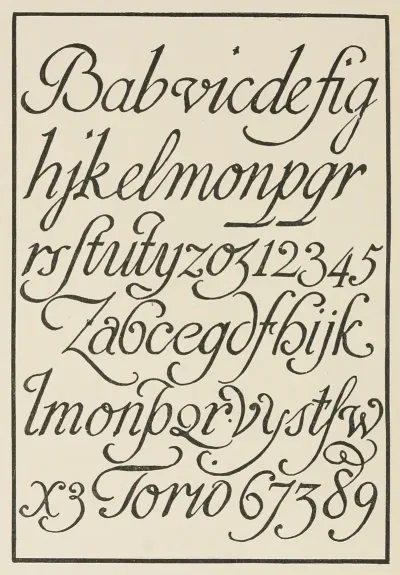 Babvicdefig
hjkelmonpqr
rsſtutyzoʒ12345
Zabcegdfhijk
lmonpqr.vystſw
x3 Torio 67389